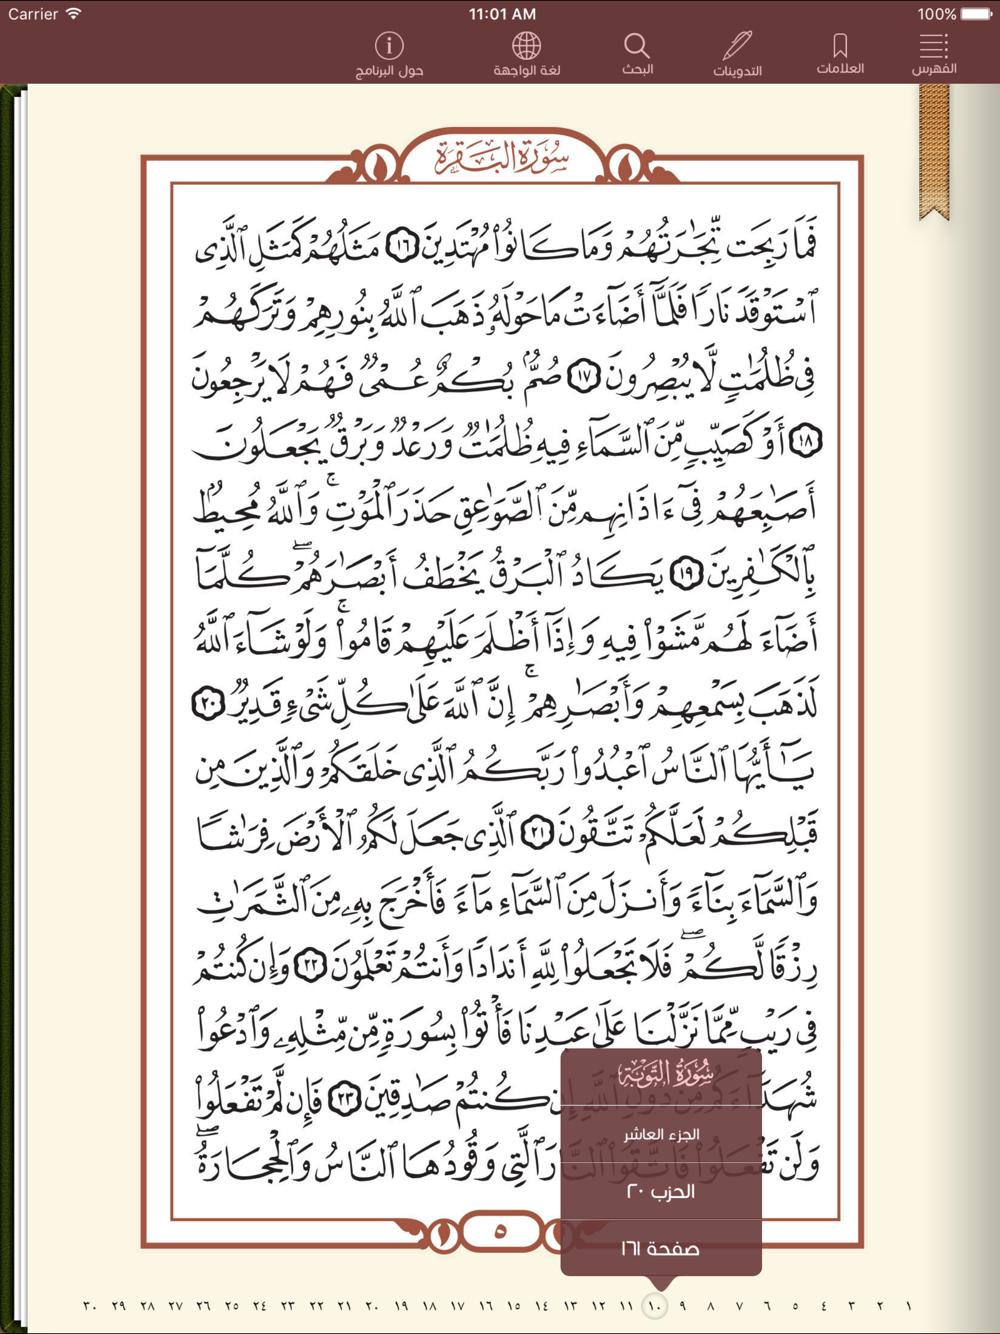 Carrier 11:01 AM 100%
الفهرس العلامات التدوينات البحث لغة الواجهة حول البرنامج
سُورَةُ البَقَرَة
فَمَا رَبِحَت تِّجَٰرَتُهُمْ وَمَا كَانُوا۟ مُهْتَدِينَ ١٦ مَثَلُهُمْ كَمَثَلِ ٱلَّذِى
ٱسْتَوْقَدَ نَارًا فَلَمَّآ أَضَآءَتْ مَا حَوْلَهُۥ ذَهَبَ ٱللَّهُ بِنُورِهِمْ وَتَرَكَهُمْ
فِى ظُلُمَٰتٍ لَّا يُبْصِرُونَ ١٧ صُمٌّۢ بُكْمٌ عُمْىٌ فَهُمْ لَا يَرْجِعُونَ
١٨ أَوْ كَصَيِّبٍ مِّنَ ٱلسَّمَآءِ فِيهِ ظُلُمَٰتٌ وَرَعْدٌ وَبَرْقٌ يَجْعَلُونَ
أَصَٰبِعَهُمْ فِىٓ ءَاذَانِهِم مِّنَ ٱلصَّوَٰعِقِ حَذَرَ ٱلْمَوْتِ ۚ وَٱللَّهُ مُحِيطٌۢ
بِٱلْكَٰفِرِينَ ١٩ يَكَادُ ٱلْبَرْقُ يَخْطَفُ أَبْصَٰرَهُمْ ۖ كُلَّمَآ
أَضَآءَ لَهُم مَّشَوْا۟ فِيهِ وَإِذَآ أَظْلَمَ عَلَيْهِمْ قَامُوا۟ ۚ وَلَوْ شَآءَ ٱللَّهُ
لَذَهَبَ بِسَمْعِهِمْ وَأَبْصَٰرِهِمْ ۚ إِنَّ ٱللَّهَ عَلَىٰ كُلِّ شَىْءٍ قَدِيرٌ ٢٠
يَٰٓأَيُّهَا ٱلنَّاسُ ٱعْبُدُوا۟ رَبَّكُمُ ٱلَّذِى خَلَقَكُمْ وَٱلَّذِينَ مِن
قَبْلِكُمْ لَعَلَّكُمْ تَتَّقُونَ ٢١ ٱلَّذِى جَعَلَ لَكُمُ ٱلْأَرْضَ فِرَٰشًا
وَٱلسَّمَآءَ بِنَآءً وَأَنزَلَ مِنَ ٱلسَّمَآءِ مَآءً فَأَخْرَجَ بِهِۦ مِنَ ٱلثَّمَرَٰتِ
رِزْقًا لَّكُمْ ۖ فَلَا تَجْعَلُوا۟ لِلَّهِ أَندَادًا وَأَنتُمْ تَعْلَمُونَ ٢٢ وَإِن كُنتُمْ
فِى رَيْبٍ مِّمَّا نَزَّلْنَا عَلَىٰ عَبْدِنَا فَأْتُوا۟ بِسُورَةٍ مِّن مِّثْلِهِۦ وَٱدْعُوا۟
شُهَدَآءَكُم مِّن دُونِ ٱللَّهِ إِن كُنتُمْ صَٰدِقِينَ ٢٣ فَإِن لَّمْ تَفْعَلُوا۟
وَلَن تَفْعَلُوا۟ فَٱتَّقُوا۟ ٱلنَّارَ ٱلَّتِى وَقُودُهَا ٱلنَّاسُ وَٱلْحِجَارَةُ ۖ
سُورَةُ التَّوْبَة
الجزء العاشر
الحزب ٢٠
صفحة ١٦١
٥
١ ٢ ٣ ٤ ٥ ٦ ٧ ٨ ٩ ١٠ ١١ ١٢ ١٣ ١٤ ١٥ ١٦ ١٧ ١٨ ١٩ ٢٠ ٢١ ٢٢ ٢٣ ٢٤ ٢٥ ٢٦ ٢٧ ٢٨ ٢٩ ٣٠